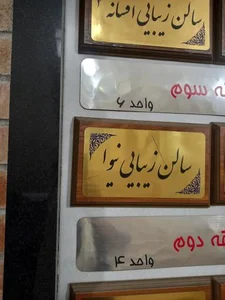 سالن زیبایی افسانه
ـه سوم
واحد ۶
سالن زیبایی نیوا
ـقه دوم
واحد ۴